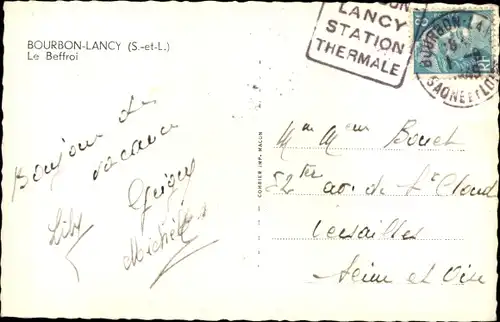 BOURBON-LANCY (S.-et-L.)
Le Beffroi
LANCY
STATION
THERMALE
BOURBON-LA
SAONE ET LOI
Bonjour de
vacance
Lily
Michèle
COMBIER IMP. MACON
Bouet
52 ter av. de St Cloud
Versailles
Seine et Oise